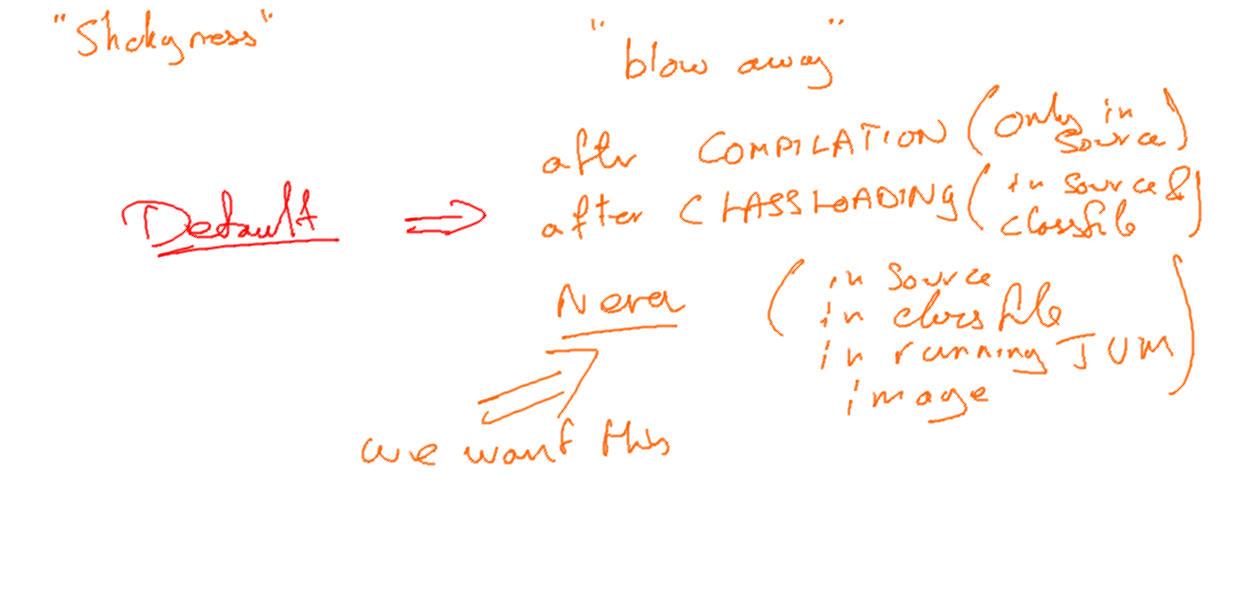 "Stickyness"
"blow away"
after COMPILATION (only in source)
Default ⇒ after CLASSLOADING (in source & classfile)
Never (in source
in classfile
in running JVM
image)
we want this